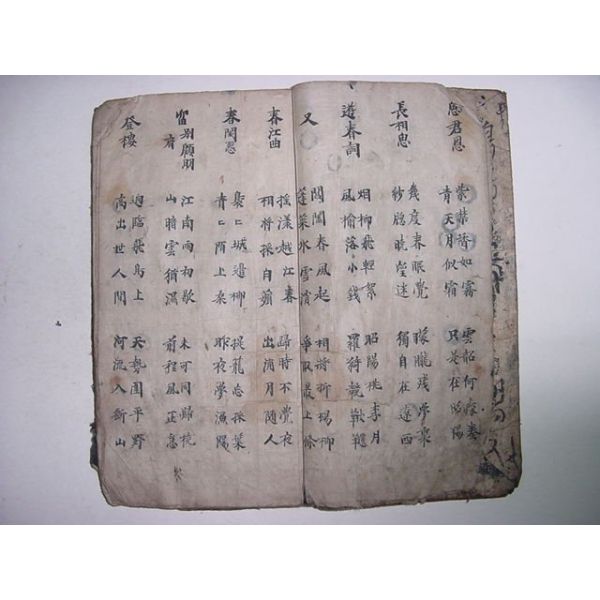 思君恩
紫禁香如霧 雲韶何處奏
青天月似霜 只是在昭陽
長相思
幾度春眠覺 朦朧殘夢裏
紗窓曉望迷 獨自在遼西
遊春詞
烟柳飛輕絮 昭陽桃李月
風榆落小錢 羅綺競鞦韆
又
閶闔春風起 相將楊柳
蓬萊氷雪消 爭取最上條
春江曲
搖漾越江春 歸時不覺夜
相將採白蘋 出浦月隨人
春閨思
裊〻城邊柳 提籠忘採葉
青〻陌上桑 昨夜夢漁陽
留別顧朋
江南雨初歇 未可同歸橈
山暗雲猶濕 前程風正急
登樓
迥臨飛鳥上 天勢圍平野
高出世人間 河流入斷山